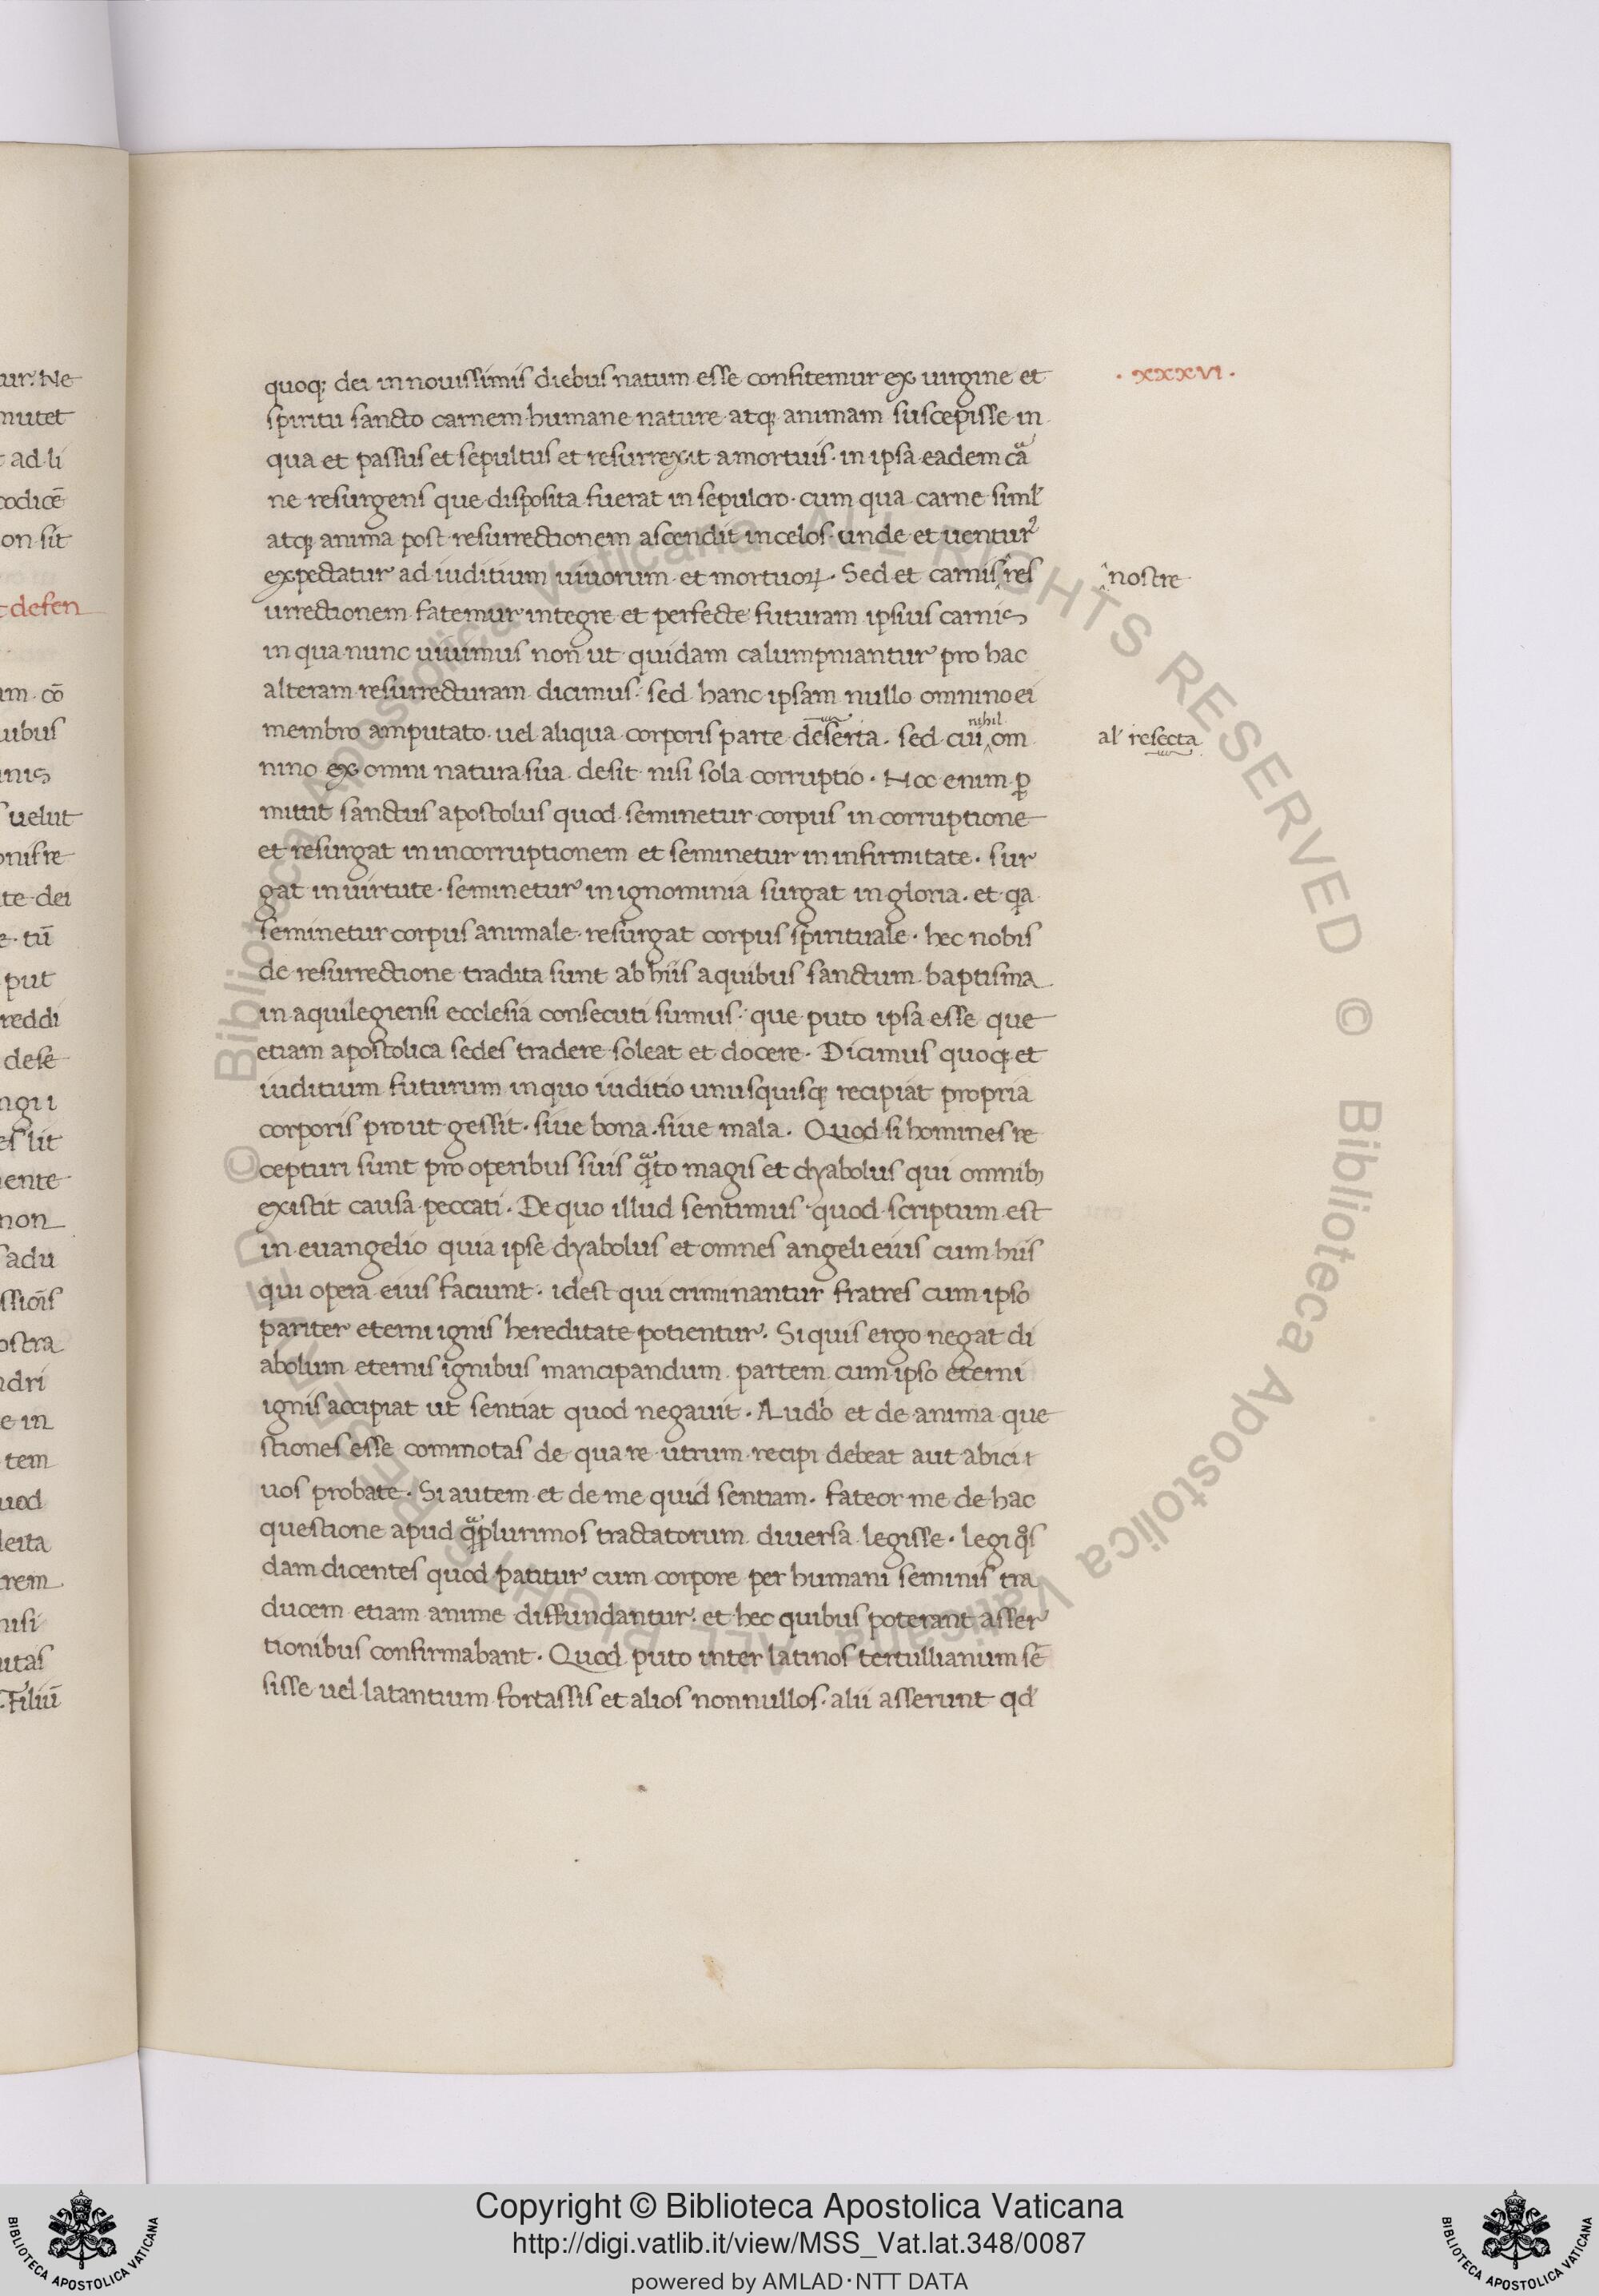 quoq; dei in nouissimis diebus natum esse confitemur ex uirgine et
· xxxvi ·
spiritu sancto carnem humane nature atq; animam suscepisse in
qua et passus et sepultus et resurrexit a mortuis · in ipsa eadem cᷓa
ne resurgens que disposita fuerat in sepulcro · cum qua carne siml̛
atq; anima post resurrectionem ascendit in celos · unde et uentur᷒
expectatur ad iuditium uiuorum et mortuoꝝ · Sed et carnis^res
^nostre
urrectionem fatemur integre et perfecte futuram ipsius carnis
in qua nunc uiuimus non ut quidam calumpniantur pro hac
alteram resurrecturam dicimus · sed hanc ipsam nullo omnino ei
membro amputato · uel aliqua corporis parte deserta · sed cui^om
nihil
al̛ resecta
nino ex omni natura sua desit nisi sola corruptio · Hoc enim ꝑ
mittit sanctus apostolus quod seminetur corpus in corruptione
et resurgat in incorruptionem et seminetur in infirmitate · sur
gat in uirtute · seminetur in ignominia surgat in gloria · et qa
seminetur corpus animale · resurgat corpus spirituale · hec nobis
de resurrectione tradita sunt ab hiis a quibus sanctum baptisma
in aquilegiensi ecclesia consecuti sumus · que puto ipsa esse que
etiam apostolica sedes tradere soleat et docere · Dicimus quoq; et
iuditium futurum in quo iuditio unusquisq; recipiat propria
corporis prout gessit · siue bona · siue mala · Quod si homines re
cepturi sunt pro operibus suis qᷓto magis et dyabolus qui omnib;
existit causa peccati · De quo illud sentimus quod scriptum est
in euangelio quia ipse dyabolus et omnes angeli eius cum hiis
qui opera eius faciunt · idest qui criminantur fratres cum ipso
pariter eterni ignis hereditate potientur · Si quis ergo negat di
abolum eternis ignibus mancipandum partem cum ipso eterni
ignis accipiat ut sentiat quod negauit · Audo et de anima que
stiones esse commotas de qua re utrum recipi debeat aut abici ı
uos probate · Si autem et de me quid sentiam · fateor me de hac
questione apud qᷓplurimos tractatorum diuersa legisse · legi qͦs
dam dicentes quod patitur cum corpore per humani seminis tra
ducem etiam anime diffundantur · et hec quibus poterant asser
tionibus confirmabant · Quod puto inter latinos tertullianum sē
sisse uel latantium fortassis et alios nonnullos · alii asserunt qd̛
Copyright © Biblioteca Apostolica Vaticana
http://digi.vatlib.it/view/MSS_Vat.lat.348/0087
powered by AMLAD·NTT DATA